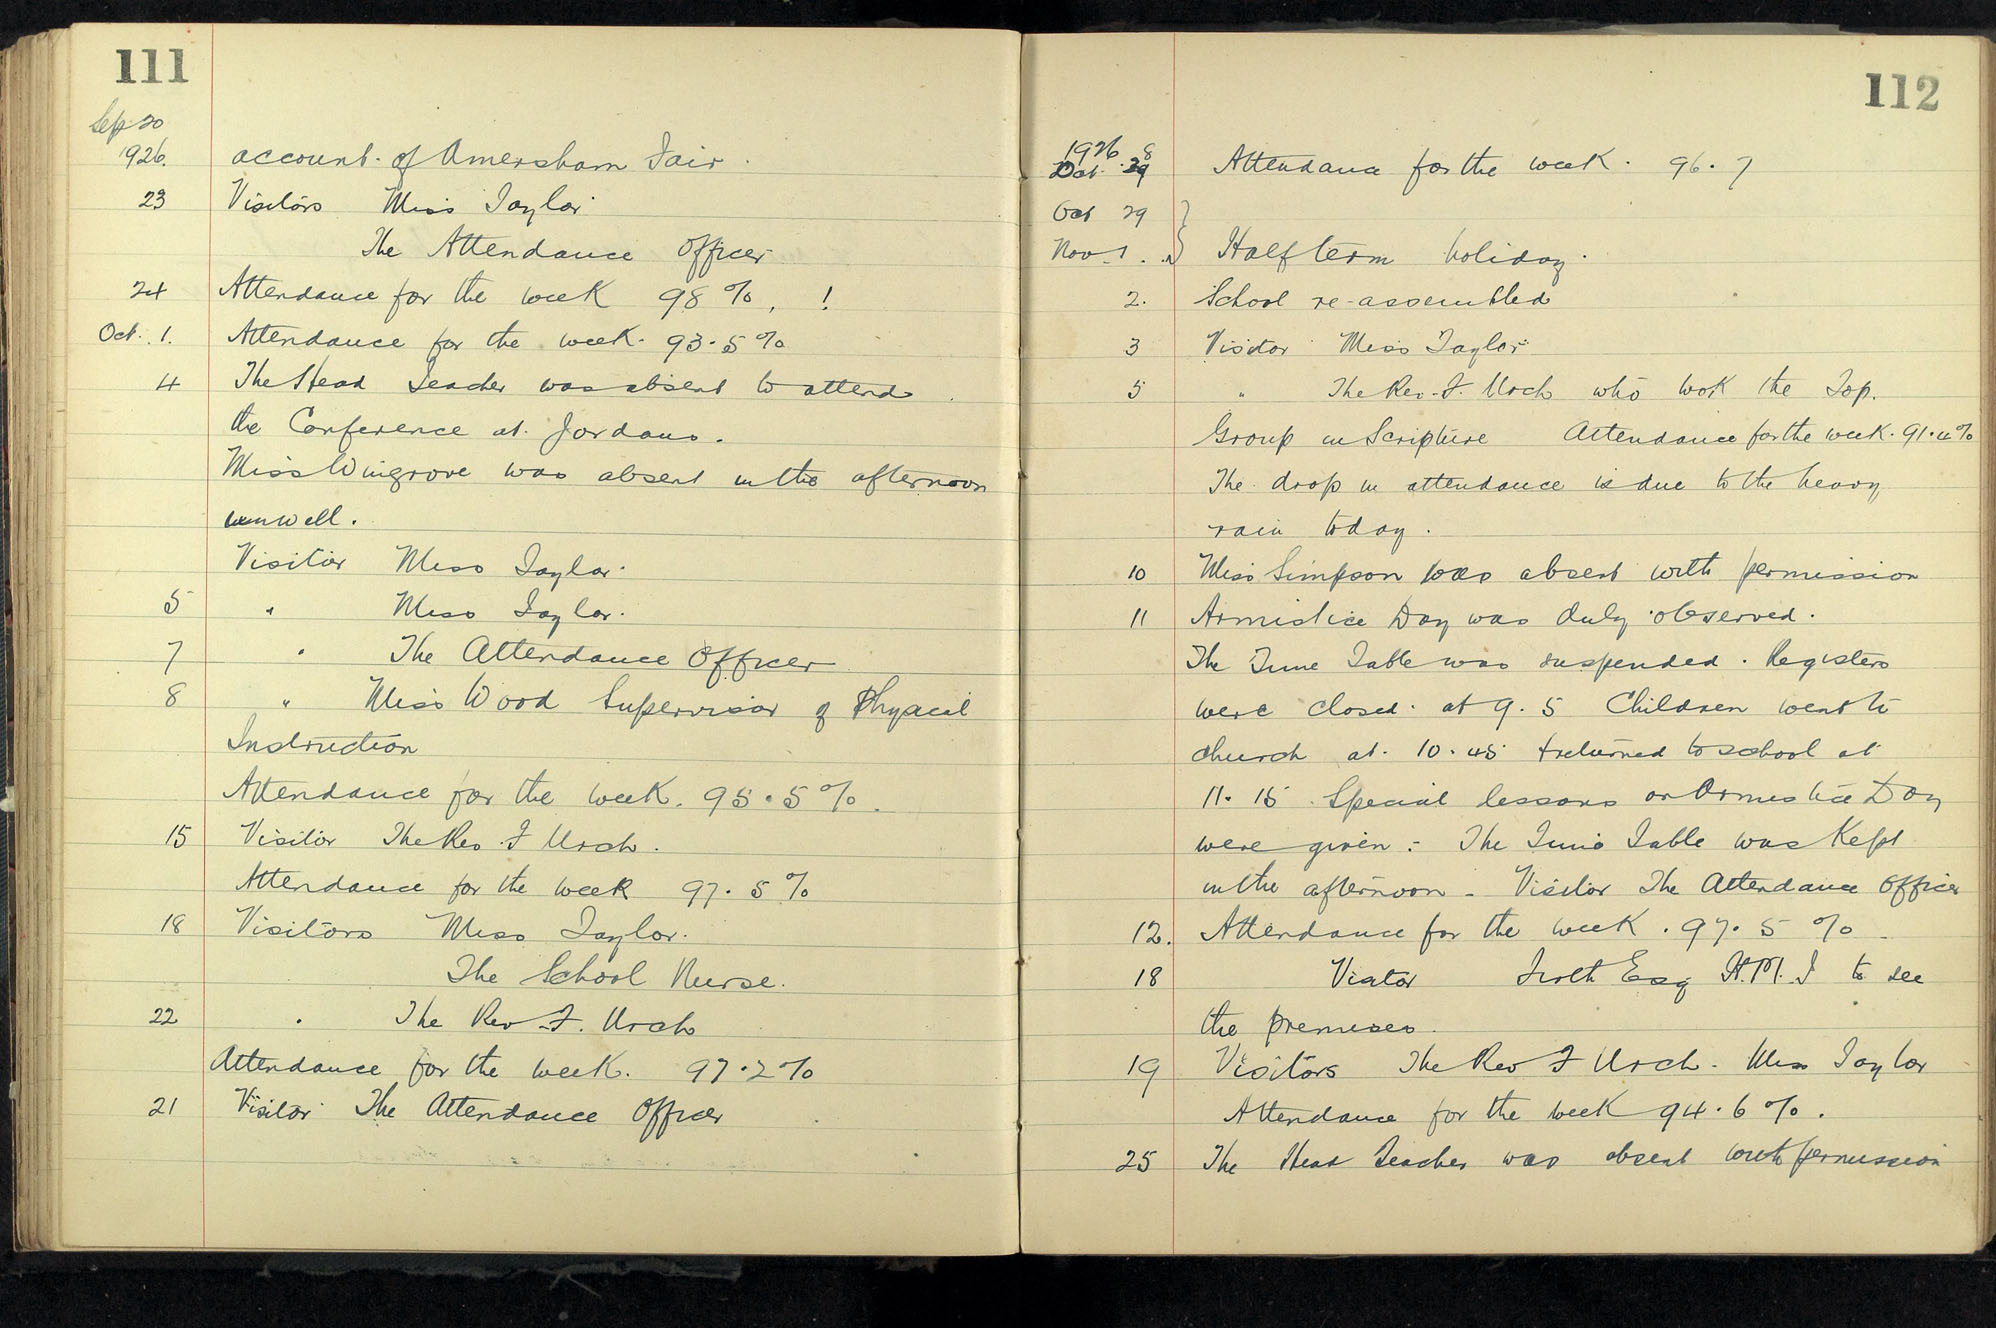 111
Sep 20
1926. account of Amersham Fair.
23 Visitors Miss Taylor
The Attendance Officer
24 Attendance for the week 98 %. !
Oct. 1. Attendance for the week. 93.5 %
4 The Head Teacher was absent to attend
the Conference at Jordans.
Miss Wingrove was absent in the afternoon
unwell.
Visitor Miss Taylor.
5 " Miss Taylor.
7 " The Attendance Officer
8 " Miss Wood Supervisor of Physical
Instruction
Attendance for the week. 95.5 %.
15 Visitor The Rev. F Urch.
Attendance for the week 97.5 %
18 Visitors Miss Taylor.
The School Nurse.
22 " The Rev. F. Urch
Attendance for the week. 97.2 %
21 Visitor The Attendance Officer
112
1926
Oct. 28 Attendance for the week. 96.7
Oct 29 }
Nov 1. } Half term holiday.
2. School re-assembled
3 Visitor Miss Taylor
5 " The Rev. F. Urch who took the Top.
Group in Scripture Attendance for the week. 91.4 %
The drop in attendance is due to the heavy
rain today.
10 Miss Simpson was absent with permission
11 Armistice Day was duly observed.
The Time Table was suspended. Registers
were closed at 9.5 Children went to
church at 10.45 & returned to school at
11.15. Special lessons on Armistice Day
were given. The Time Table was Kept
in the afternoon - Visitor The Attendance Officer
12. Attendance for the week. 97.5 %
18 Visitor Esq H.M.I to see
the premises.
19 Visitors The Rev F Urch. Miss Taylor
Attendance for the week 94.6 %.
25 The Head Teacher was absent with permission